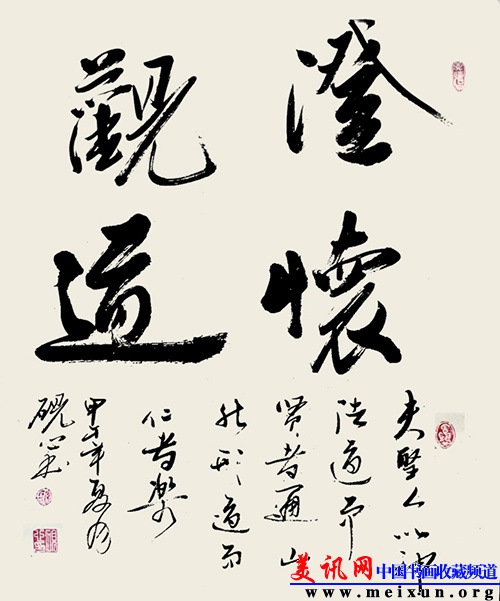 澄懷
觀道
夫聖人以神
法道而
賢者通山
形道而
仁者樂
甲午年夏月
硯
美讯网 中国书画收藏频道
www.meixun.org